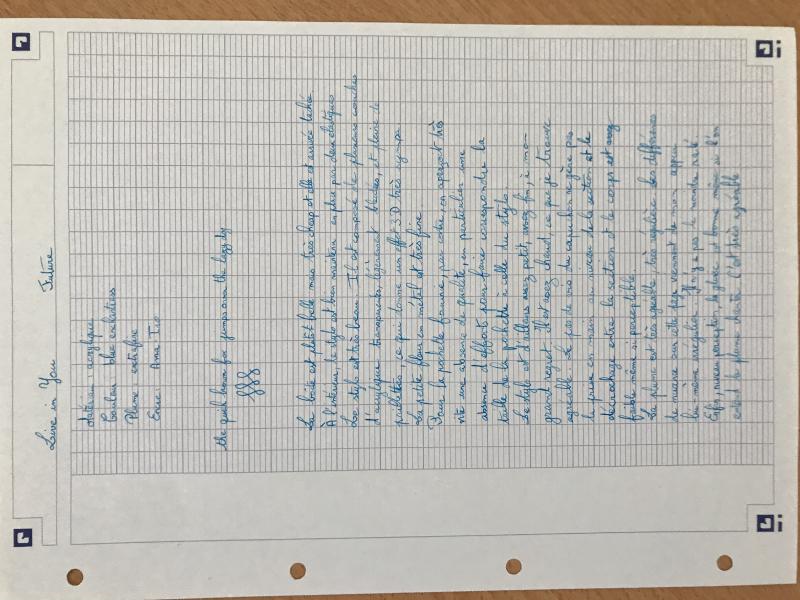 Live in You Future
Matériau : acrylique
Couleur : blue exhibitions
Plume : extrafine
Encre : Ama Iro
the quick brown fox jumps over the lazy dog
La boîte est plutôt belle mais très cheap et elle est arrivée tachée
À l'intérieur, le stylo est bien maintenu en place par deux élastiques
Le stylo est très beau. Il est composé de plusieurs couches
d'acrylique transparentes, légèrement bleutées, et pleine de
paillettes, ce qui donne un effet 3D très sympa.
La petite fleur en métal est très fine.
Pour la pochette fournie, par contre, on aperçoit très
vite une absence de qualité, en particulier une
absence d'efforts pour faire correspondre la
taille de la pochette à celle du stylo.
Le stylo est d'ailleurs assez petit, assez fin, à mon
grand regret. Il est assez chaud, ce que je trouve
agréable. Le pas de vis du capuchon ne gêne pas
la prise en main au niveau de la section et le
décrochage entre la section et le corps est assez
faible même si perceptible.
La plume est très agréable, très régulière. Les différences
de nuance sur cette page viennent de mon appui
lui même irrégulier. Il n'y a pas le moindre raté.
Enfin, niveau perception, la glisse est bonne même si l'on
entend la plume chanter. C'est très agréable